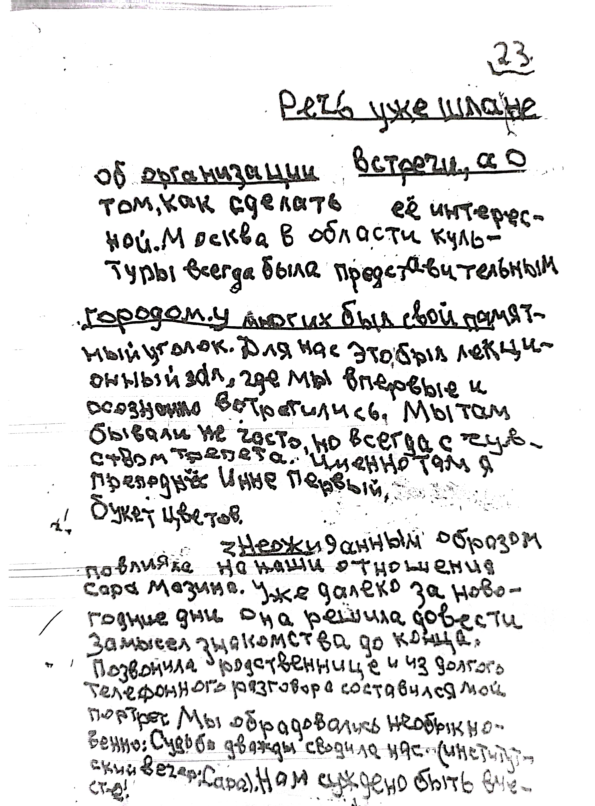 23.
Речь уже шла не
об организации встречи, а о
том, как сделать её интерес-
ной. Москва в области куль-
туры всегда была представительным
городом. у многих был свой памят-
ный уголок. Для нас это был лекци-
онный зал, где мы впервые и
осознанно встретились. Мы там
бывали не часто, но всегда с чув-
ством трепета. Именно там я
преподнёс Инне первый,
букет цветов.
Неожиданным образом
повлияла на наши отношения
Сара Мазина. Уже далеко за ново-
годние дни она решила довести
замысел знакомства до конца.
Позвонила родственнице и из долгого
телефонного разговора составился мой
портрет Мы обрадовались необыкно-
венно: Судьба дважды сводила нас (институт-
ский вечер; Сара). Нам суждено быть вме-
сте!